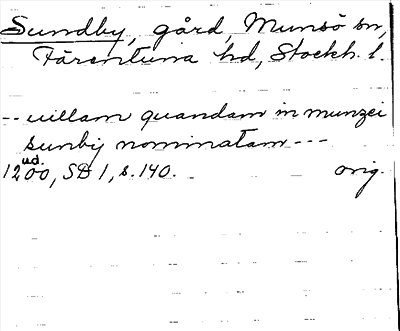 Sundby, gård, Munsö sn,
Färentuna hd, Stockh. l.
-- uillam quandam in munzei
sunbij nominatam ---
ud.
1200, SD 1, s. 140. orig.